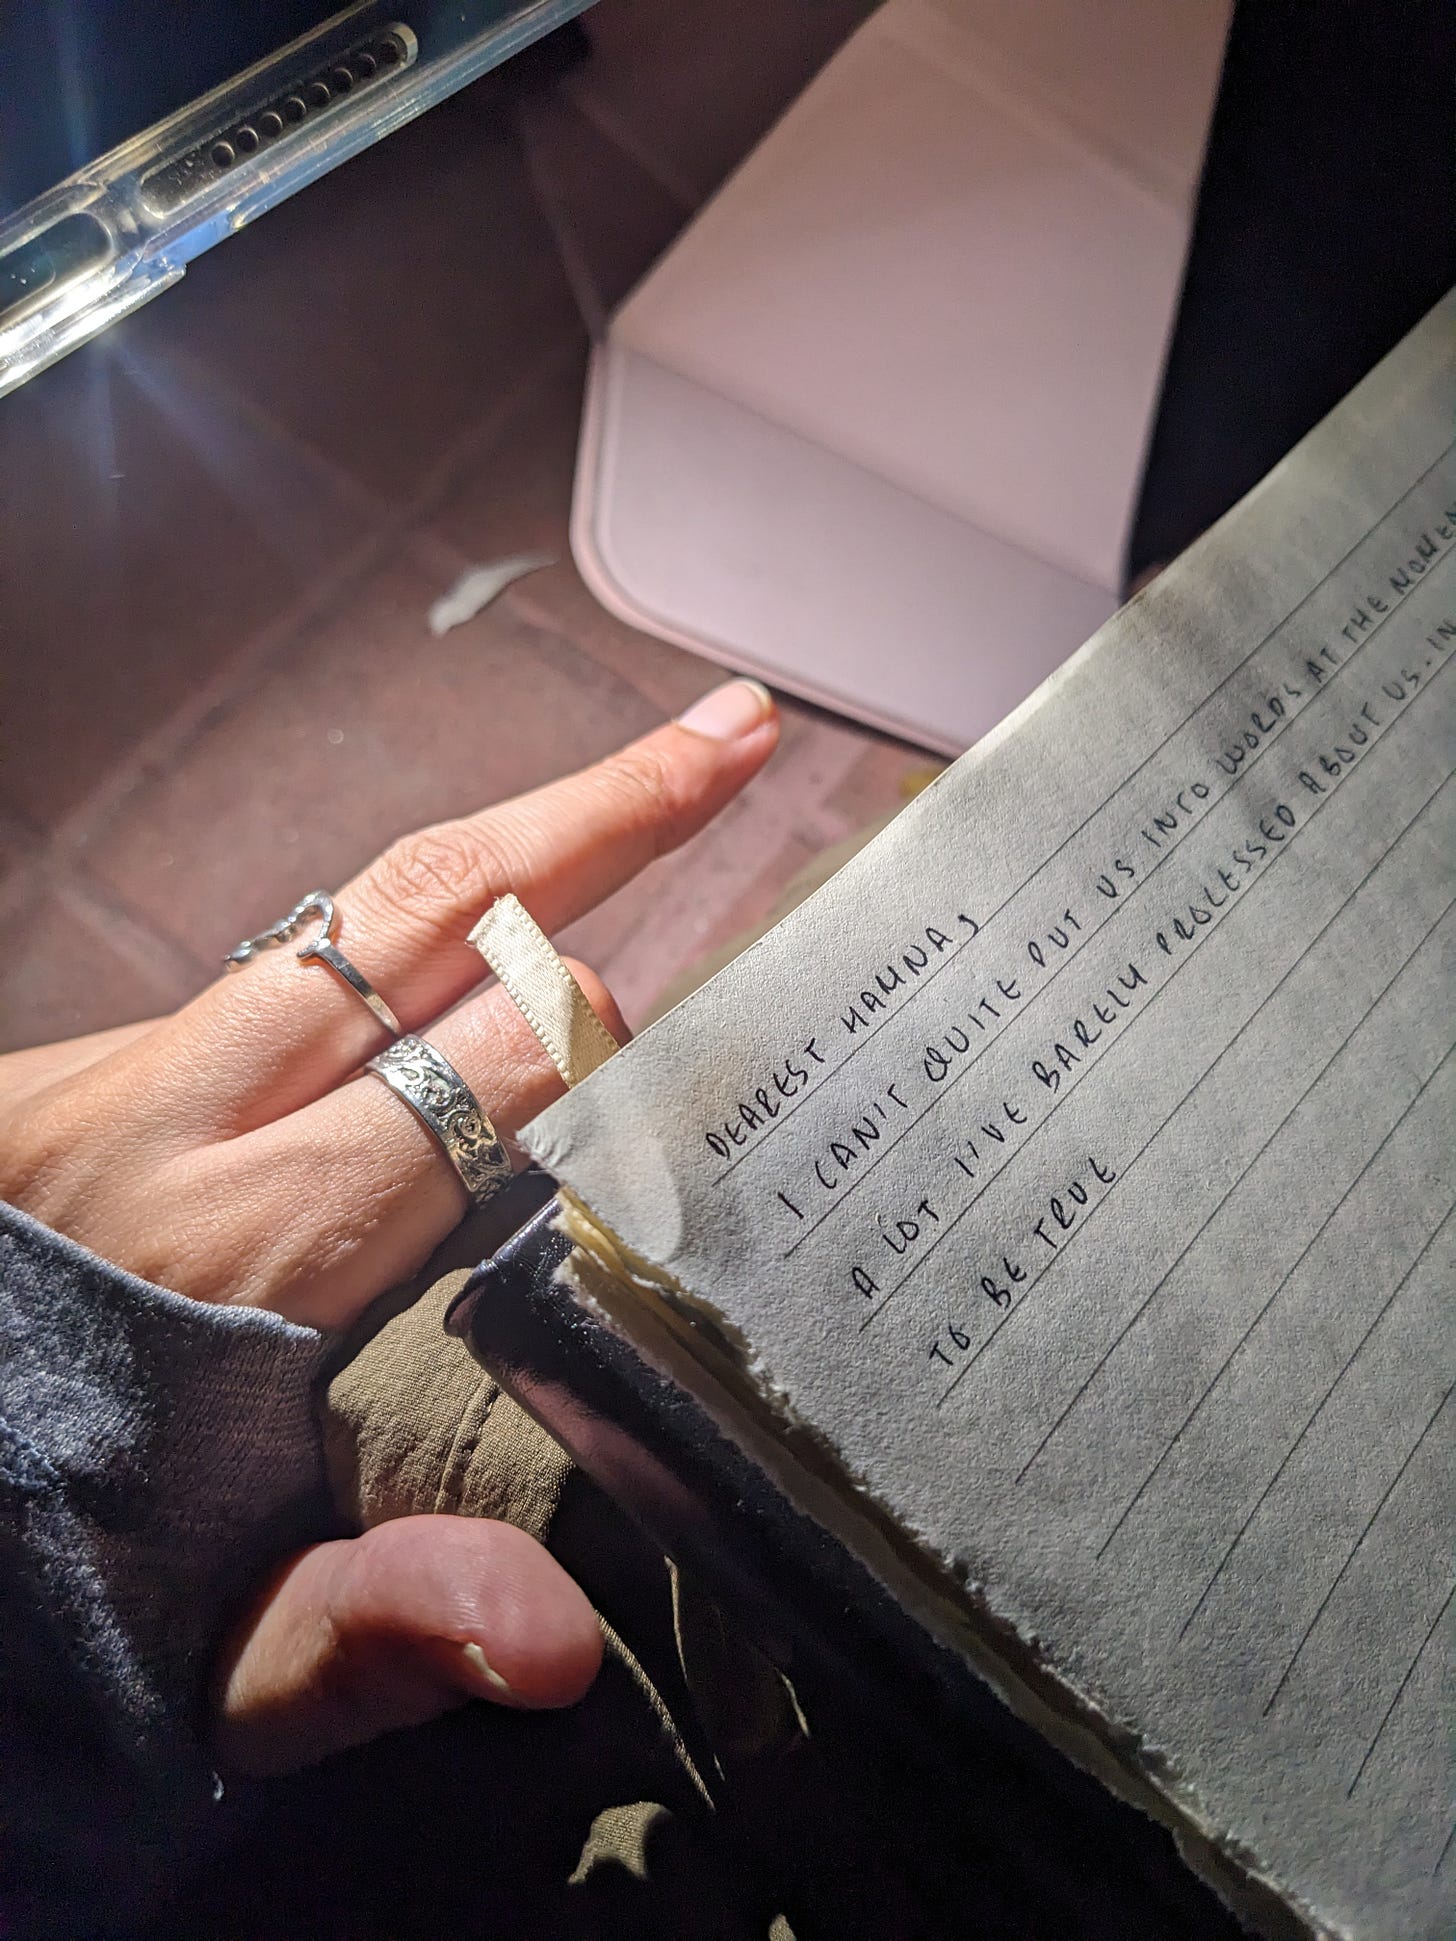 DEAREST HAMNA,
I CAN'T QUITE PUT US INTO WORDS AT THE
A LOT I'VE BARELY PROCESSED ABOUT US. IN
TO BE TRUE